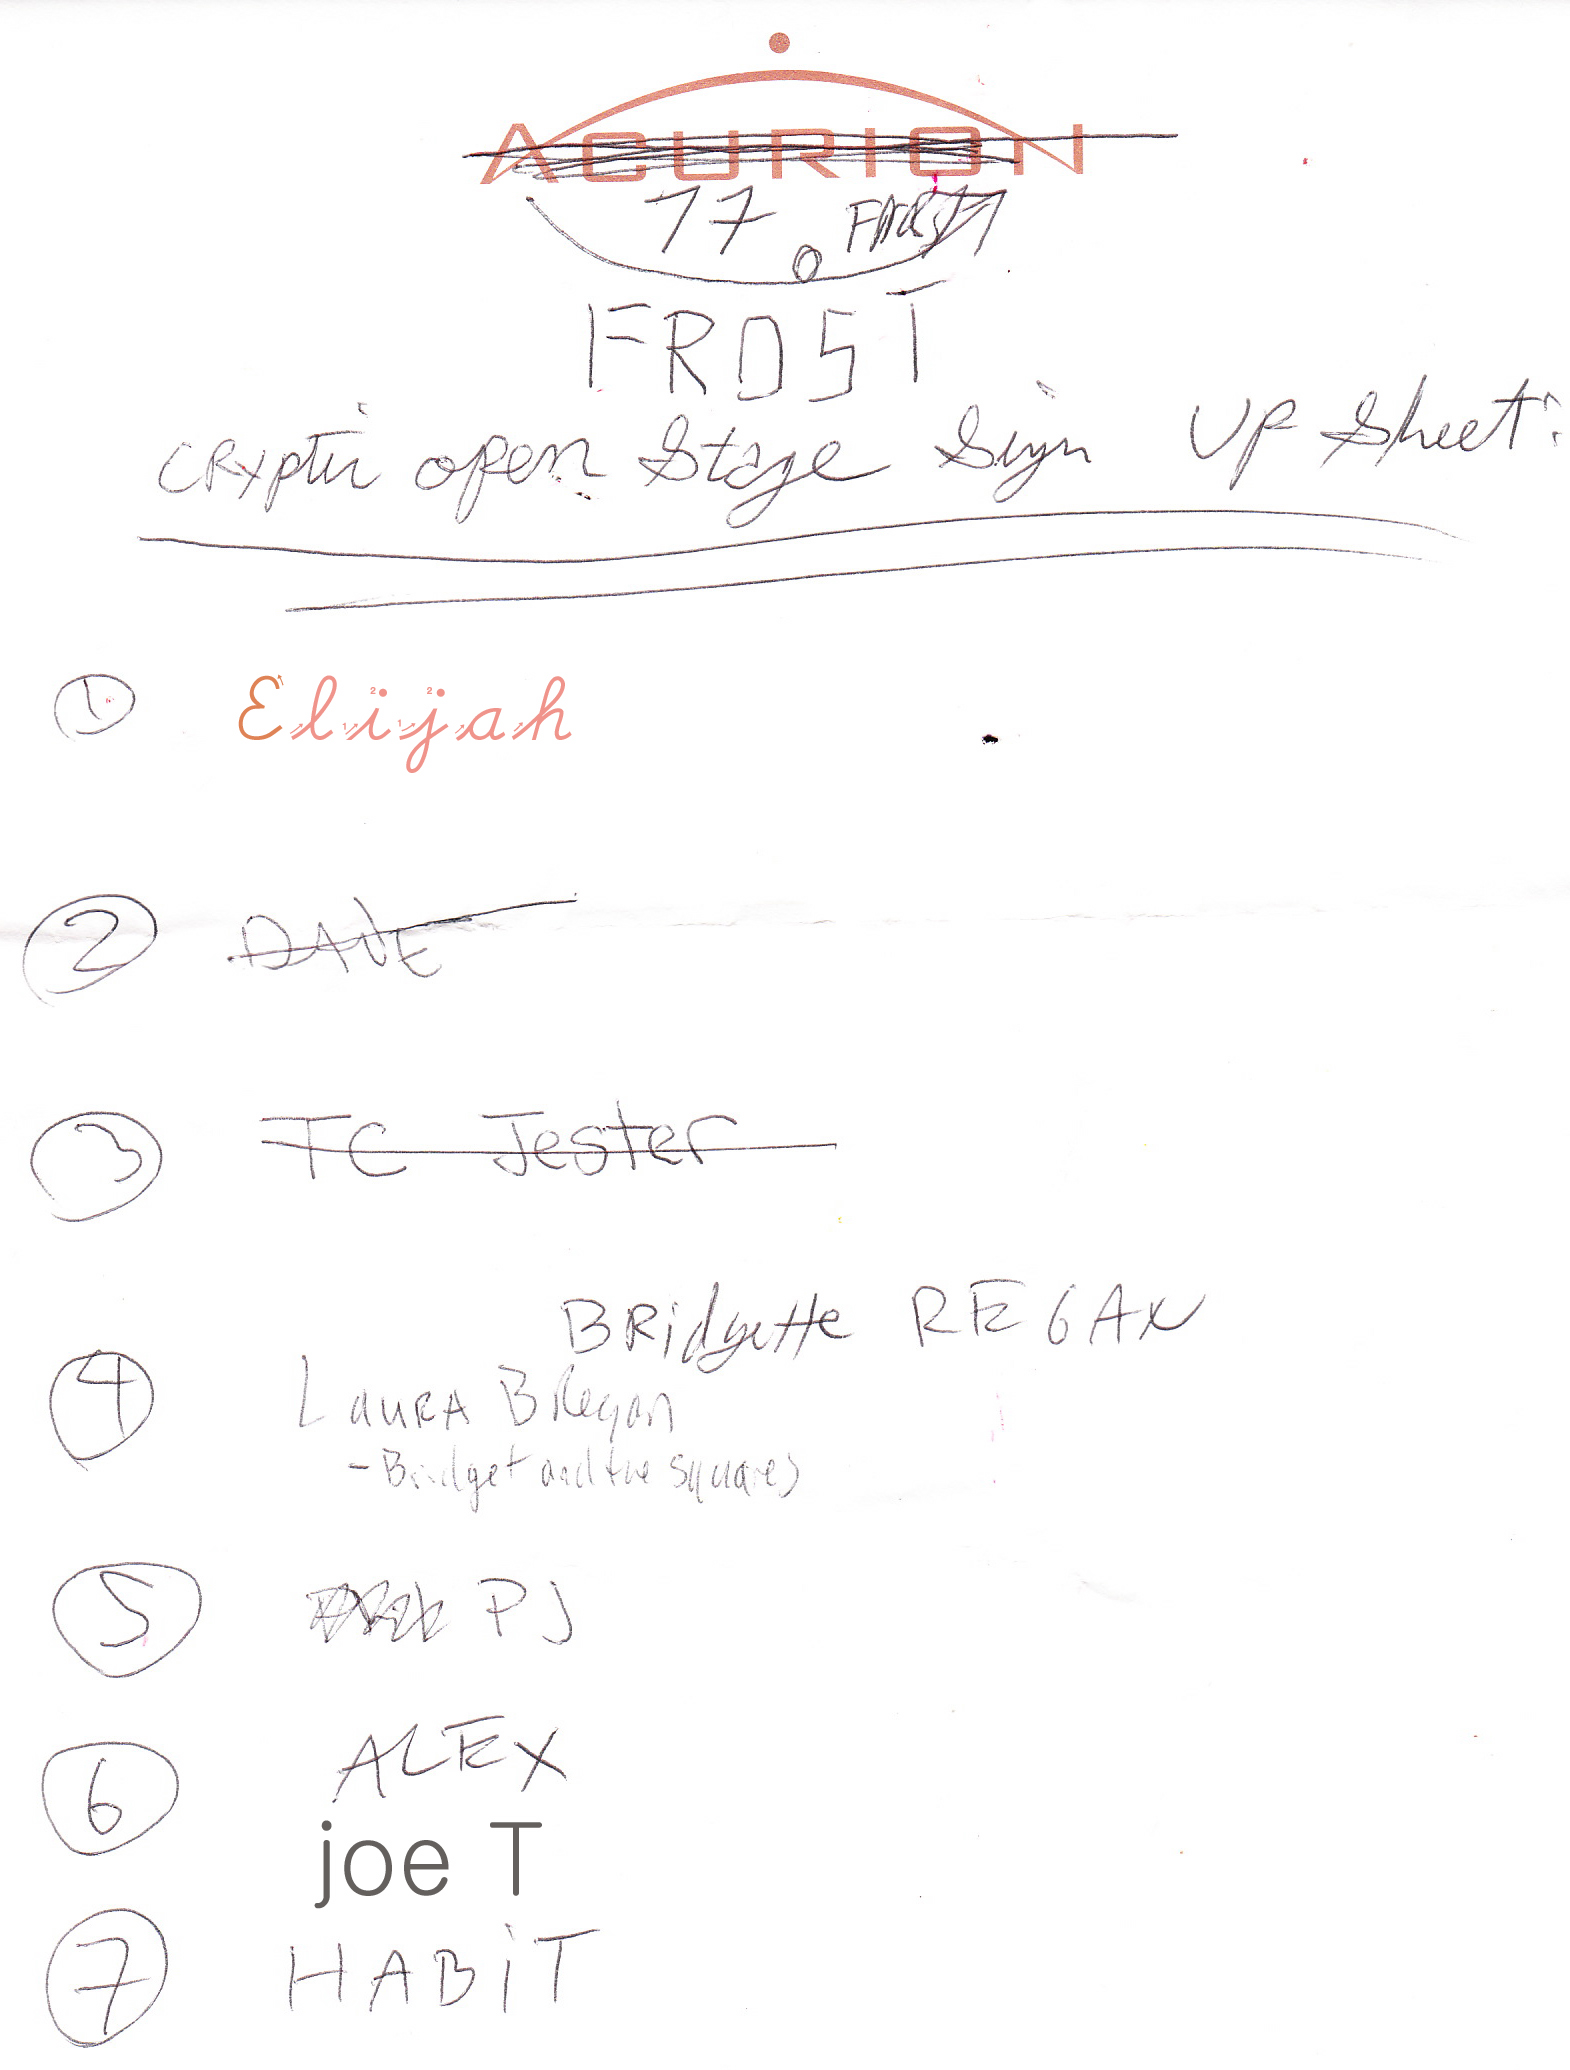 ACURION
77
FROST
CRYptic open Stage Sign UP Sheet:
1 Elijah
2 DAVE
3 TC Jester
BRidgette REGAN
4 LauRA BRegan
- Bridget and the squares
5 PJ
6 ALEX
joe T
7 HABiT